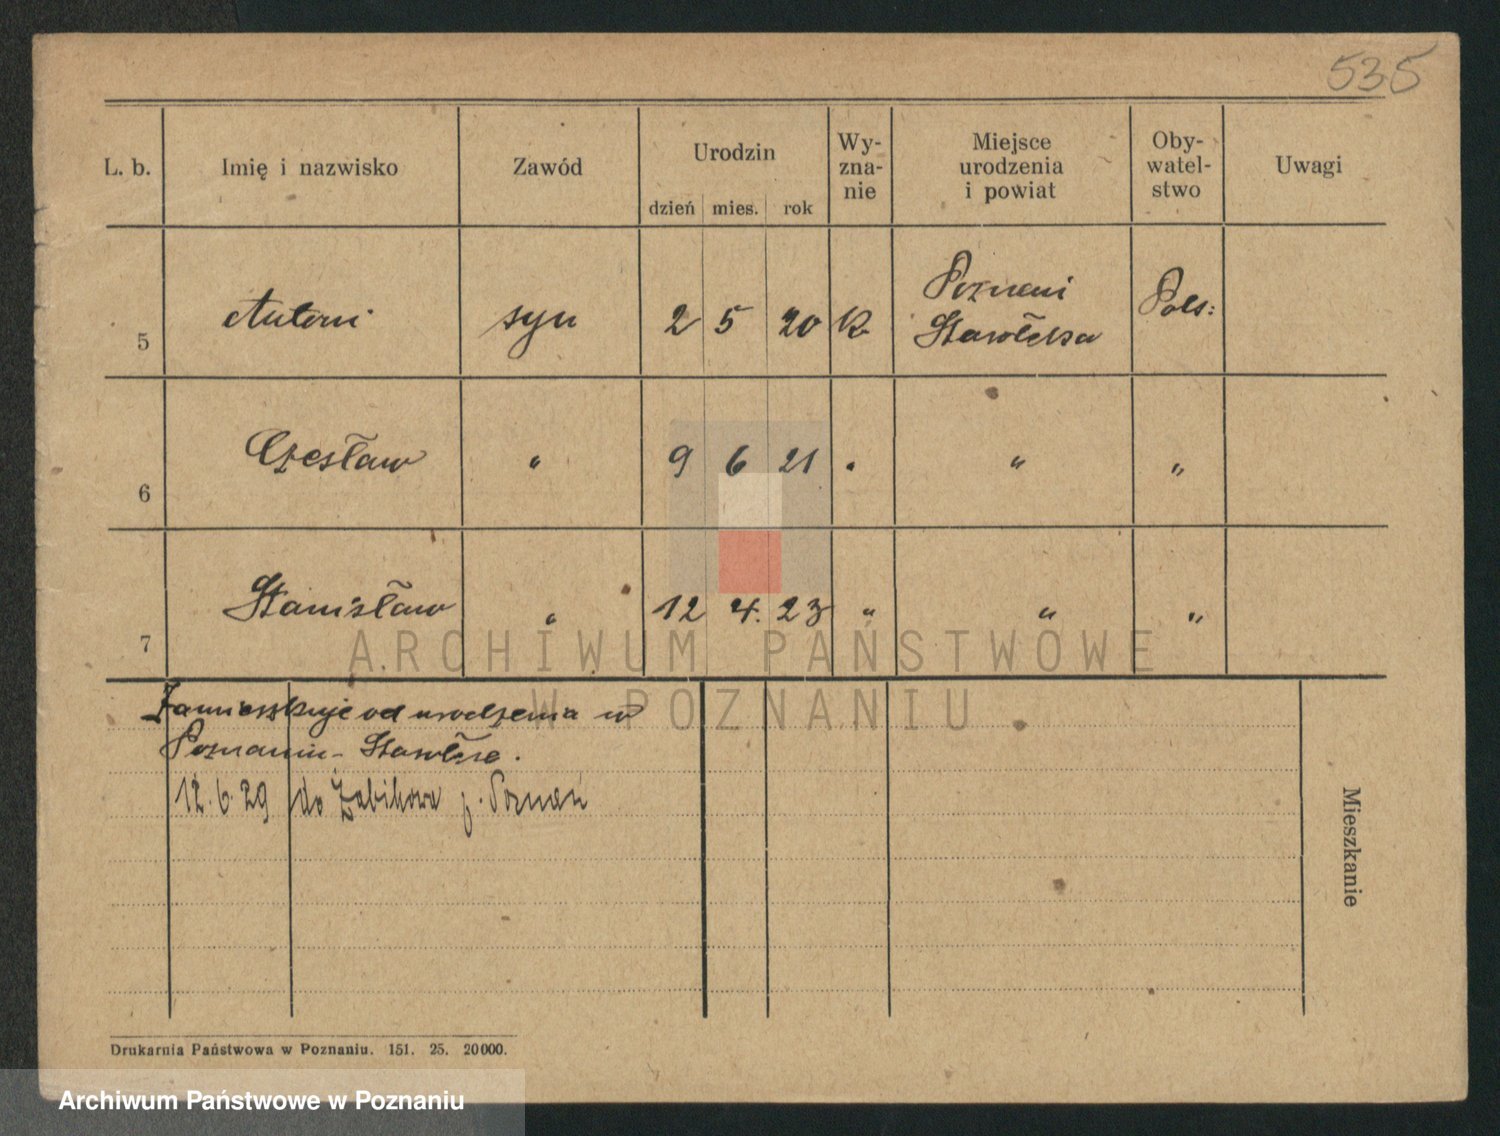 535
L. b. Imię i nazwisko Zawód Urodzin Wy-
zna-
nie Miejsce
urodzenia
i powiat Oby-
watel-
stwo Uwagi
dzień mies. rok
5 Antoni syn 2 5 20 k Poznań
Starołęka Pols:
6 Czesław " 9 6 21 " " "
7 Stanisław " 12 4. 23 " " "
ARCHIWUM PAŃSTWOWE
W POZNANIU
Zamieszkuje od urodzenia w
Poznaniu - Starołęce.
12.6.29 do Żabikowa p. Poznań
Mieszkanie
Drukarnia Państwowa w Poznaniu. 151. 25. 20000.
Archiwum Państwowe w Poznaniu